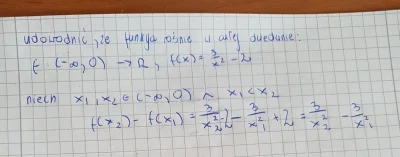 udowodnić, że funkcja rośnie w całej dziedzinie:
f: (-∞, 0) → R, f(x) = 3/x² - 2
niech x₁, x₂ ∈ (-∞, 0) ∧ x₁ < x₂
f(x₂) - f(x₁) = 3/x₂² - 2 - 3/x₁² + 2 = 3/x₂² - 3/x₁²